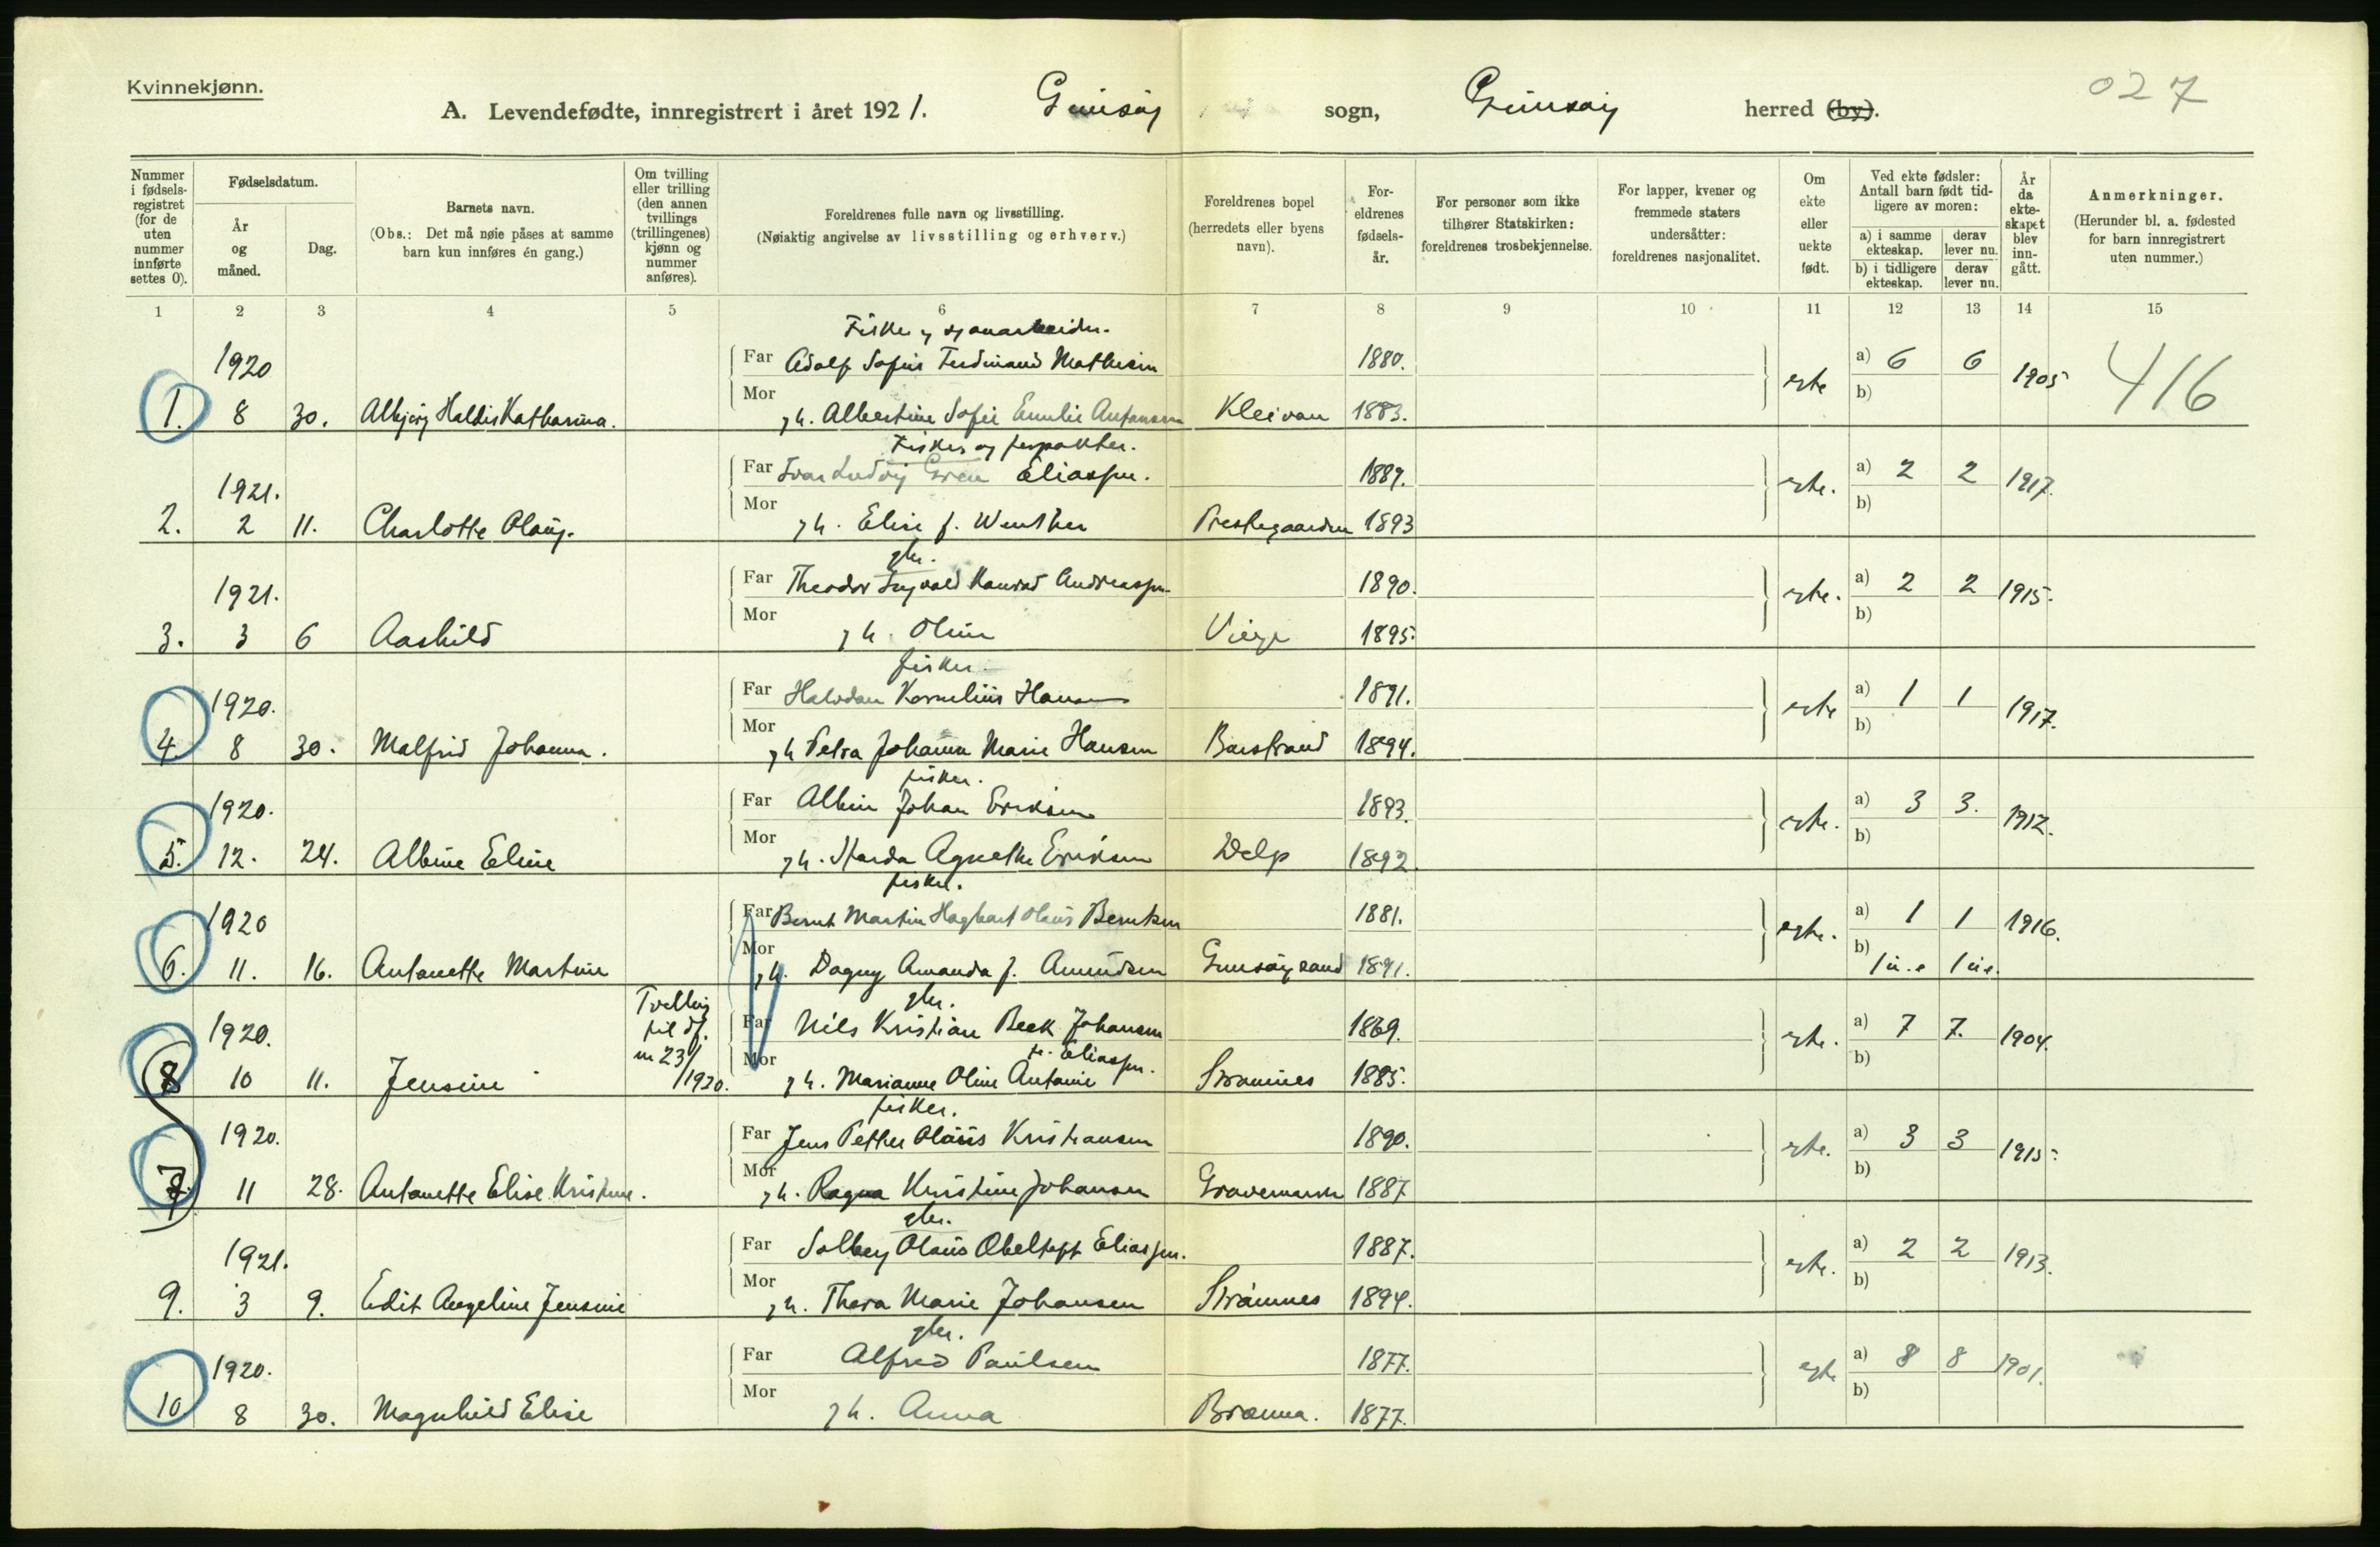 Kvinnekjønn.
027
A. Levendefødte, innregistrert i året 1921. Gimsøy sogn, Gimsøy herred (by).
Nummer i fødselsregistret (for de uten nummer innførte settes 0).
Fødselsdatum.
År og måned.
Dag.
Barnets navn.
(Obs.: Det må nøie påses at samme barn kun innføres én gang.)
Om tvilling eller trilling (den annen tvillings (trillingenes) kjønn og nummer anføres).
Foreldrenes fulle navn og livsstilling.
(Nøiaktig angivelse av livsstilling og erhverv.)
Foreldrenes bopel (herredets eller byens navn).
Foreldrenes fødselsår.
For personer som ikke tilhører Statskirken: foreldrenes trosbekjennelse.
For lapper, kvener og fremmede staters undersåtter: foreldrenes nasjonalitet.
Om ekte eller uekte født.
Ved ekte fødsler: Antall barn født tidligere av moren:
a) i samme ekteskap. derav lever nu.
b) i tidligere ekteskap. derav lever nu.
År da ekteskapet blev inngått.
Anmerkninger.
(Herunder bl. a. fødested for barn innregistrert uten nummer.)
1 2 3 4 5 6 7 8 9 10 11 12 13 14 15
Fisker
1920 Far Adolf Sofus Ferdinand Mathisen 1880. a) 6 6 1905 416
1. 8 30. Haldis Katharina. Mor h. Albertine Sofie Emilie Antonsen Kleivan 1883. egte b)
Fisker og forpakter.
1921. Far Ludvig Eliassen. 1889. a) 2 2 1917.
2. 2 11. Charlotte Olaug. Mor h. Elise f. Winther Prestegaarden 1893 egte. b)
gbr.
1921. Far Theodor Ingvald Konrad Andreassen 1890. a) 2 2 1915.
3. 3 6 Aashild Mor h. Oline 1895. egte. b)
fisker.
1920. Far Halvdan Kornelius Hansen 1891. a) 1 1 1917.
4. 8 30. Malfrid Johanna. Mor h Petra Johanna Marie Hansen Barstrand 1894. egte b)
fisker.
1920. Far Albin Johan Eriksen 1893. a) 3 3. 1912.
5. 12. 24. Albine Eline Mor h. Agnethe Eriksen 1892. egte. b)
fisker.
1920 Far Bernt Martin Hagbart Olaus Berntsen 1881. a) 1 1 1916.
6. 11. 16. Antonette Martine Mor h. Dagny Amanda f. Amundsen Gimsøysand 1891. egte. b) 1 u.e 1 u.e.
Tvilling til df. nr 23/1920.
gbr.
1920. Far Nils Kristian Beck Johansen 1869. a) 7 7. 1904.
8 10 11. Jensine Mor h. Marianne Oline Antonie f. Eliassen. Strømnes 1885. egte. b)
fisker.
1920. Far Jens Petter Olaus Kristiansen 1890. a) 3 3 1915.
7. 11 28. Antonette Elise Kristine. Mor h. Ragna Kristine Johansen 1887 egte. b)
gbr.
1921. Far Olaus Eliassen. 1887. a) 2 2 1913.
9. 3 9. Edit Angeline Jensine Mor h. Thora Marie Johansen Strømnes 1894. egte. b)
gbr.
1920. Far Alfred Paulsen 1877. a) 8 8 1901.
10 8 30. Magnhild Elise Mor h. Anna Brenna. 1877. egte b)